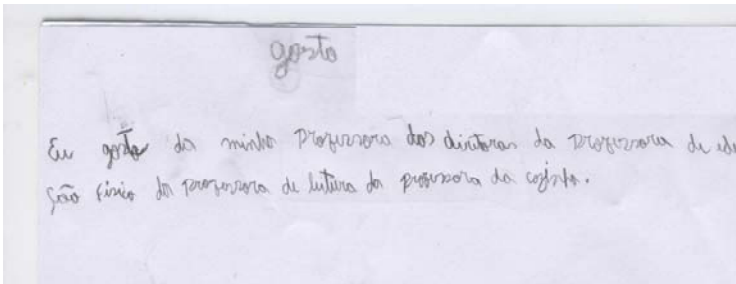 gosto
Eu gosto da minha professora das diretoras da professora de edu
ção física da professora de leitura da professora da cozinha.